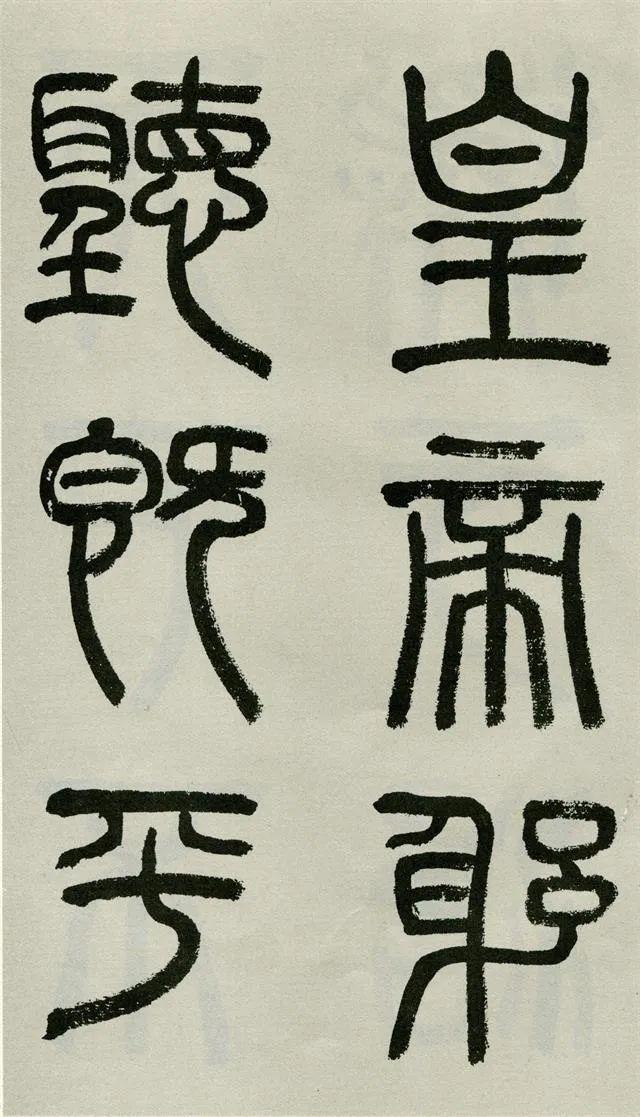 皇帝躬
聽既平